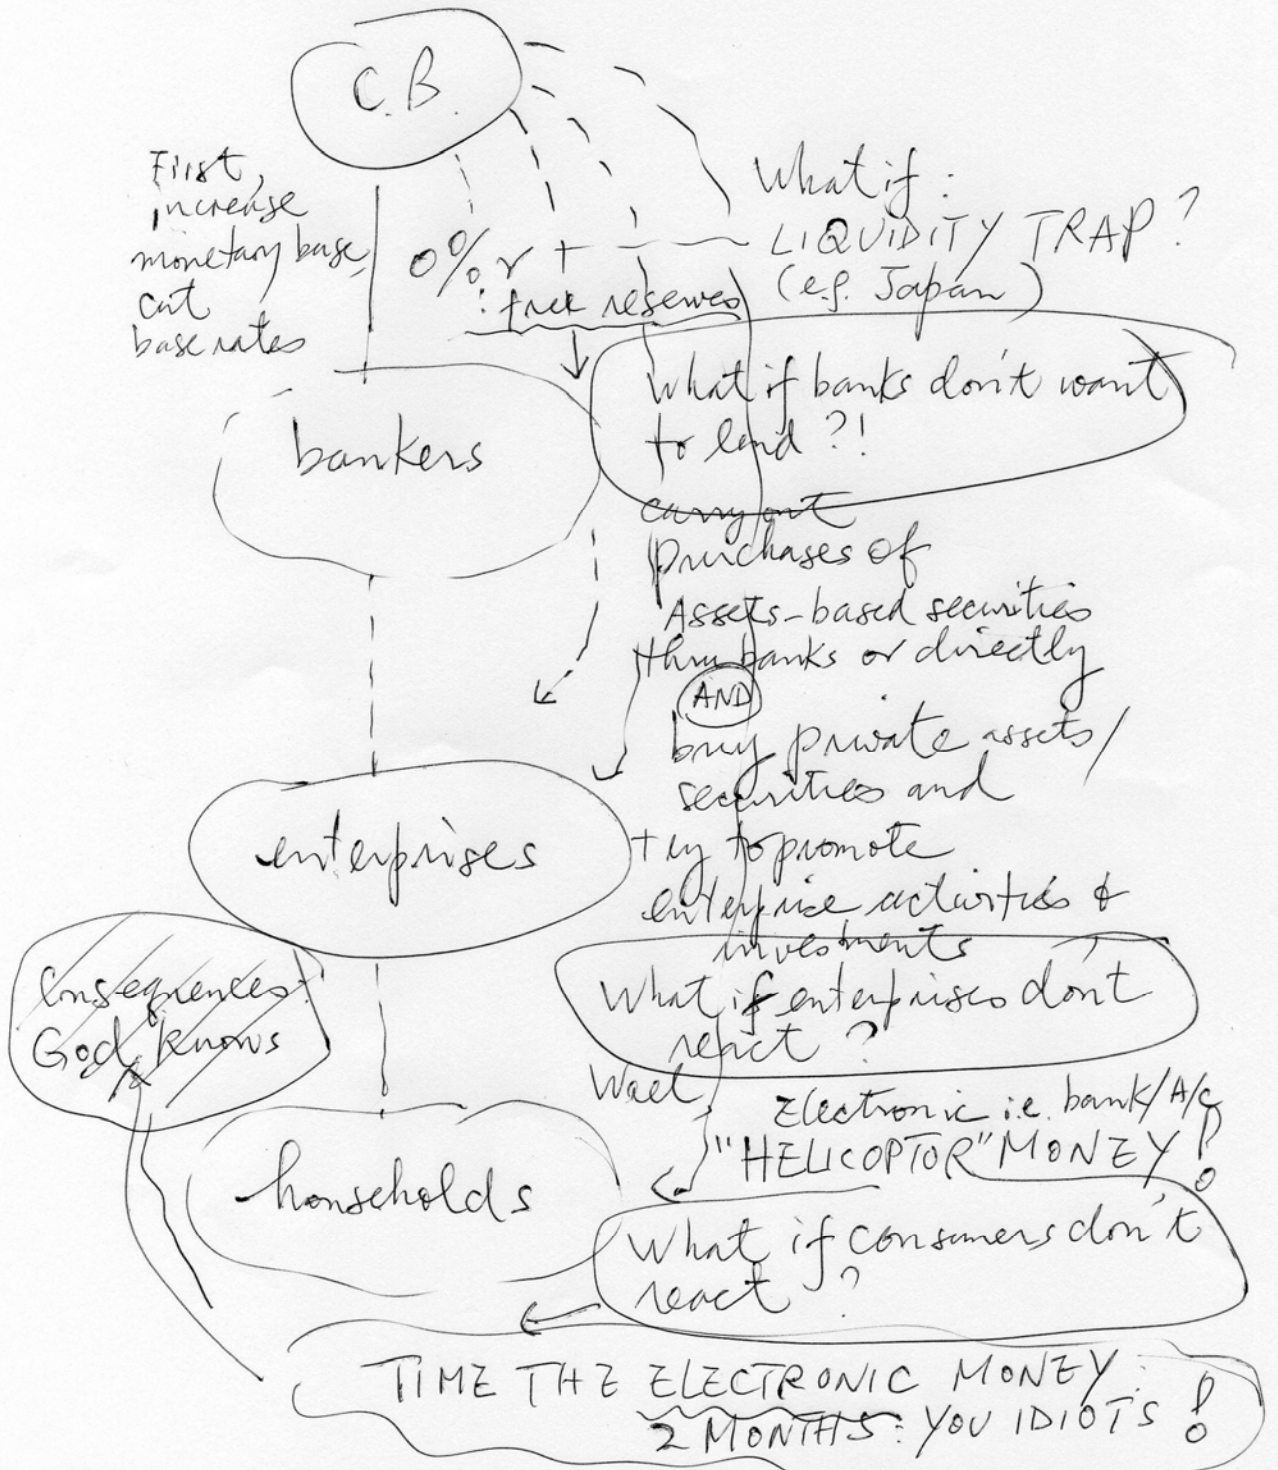 C.B.
First,
increase
monetary base
cut
base rates
What if :
LIQUIDITY TRAP?
(e.g. Japan)
0% r +
: free reserves
What if banks don't want
to lend ?!
bankers
carry out
purchases of
Assets-based securities
thru banks or directly
AND
buy private assets/
securities and
try to promote
enterprise activities &
investments
enterprises
What if enterprises don't
react ?
Consequences:
God knows
Well,
Electronic i.e. bank/A/c
"HELICOPTOR" MONEY!
households
What if consumers don't
react ?
TIME THE ELECTRONIC MONEY:
2 MONTHS: YOU IDIOTS!